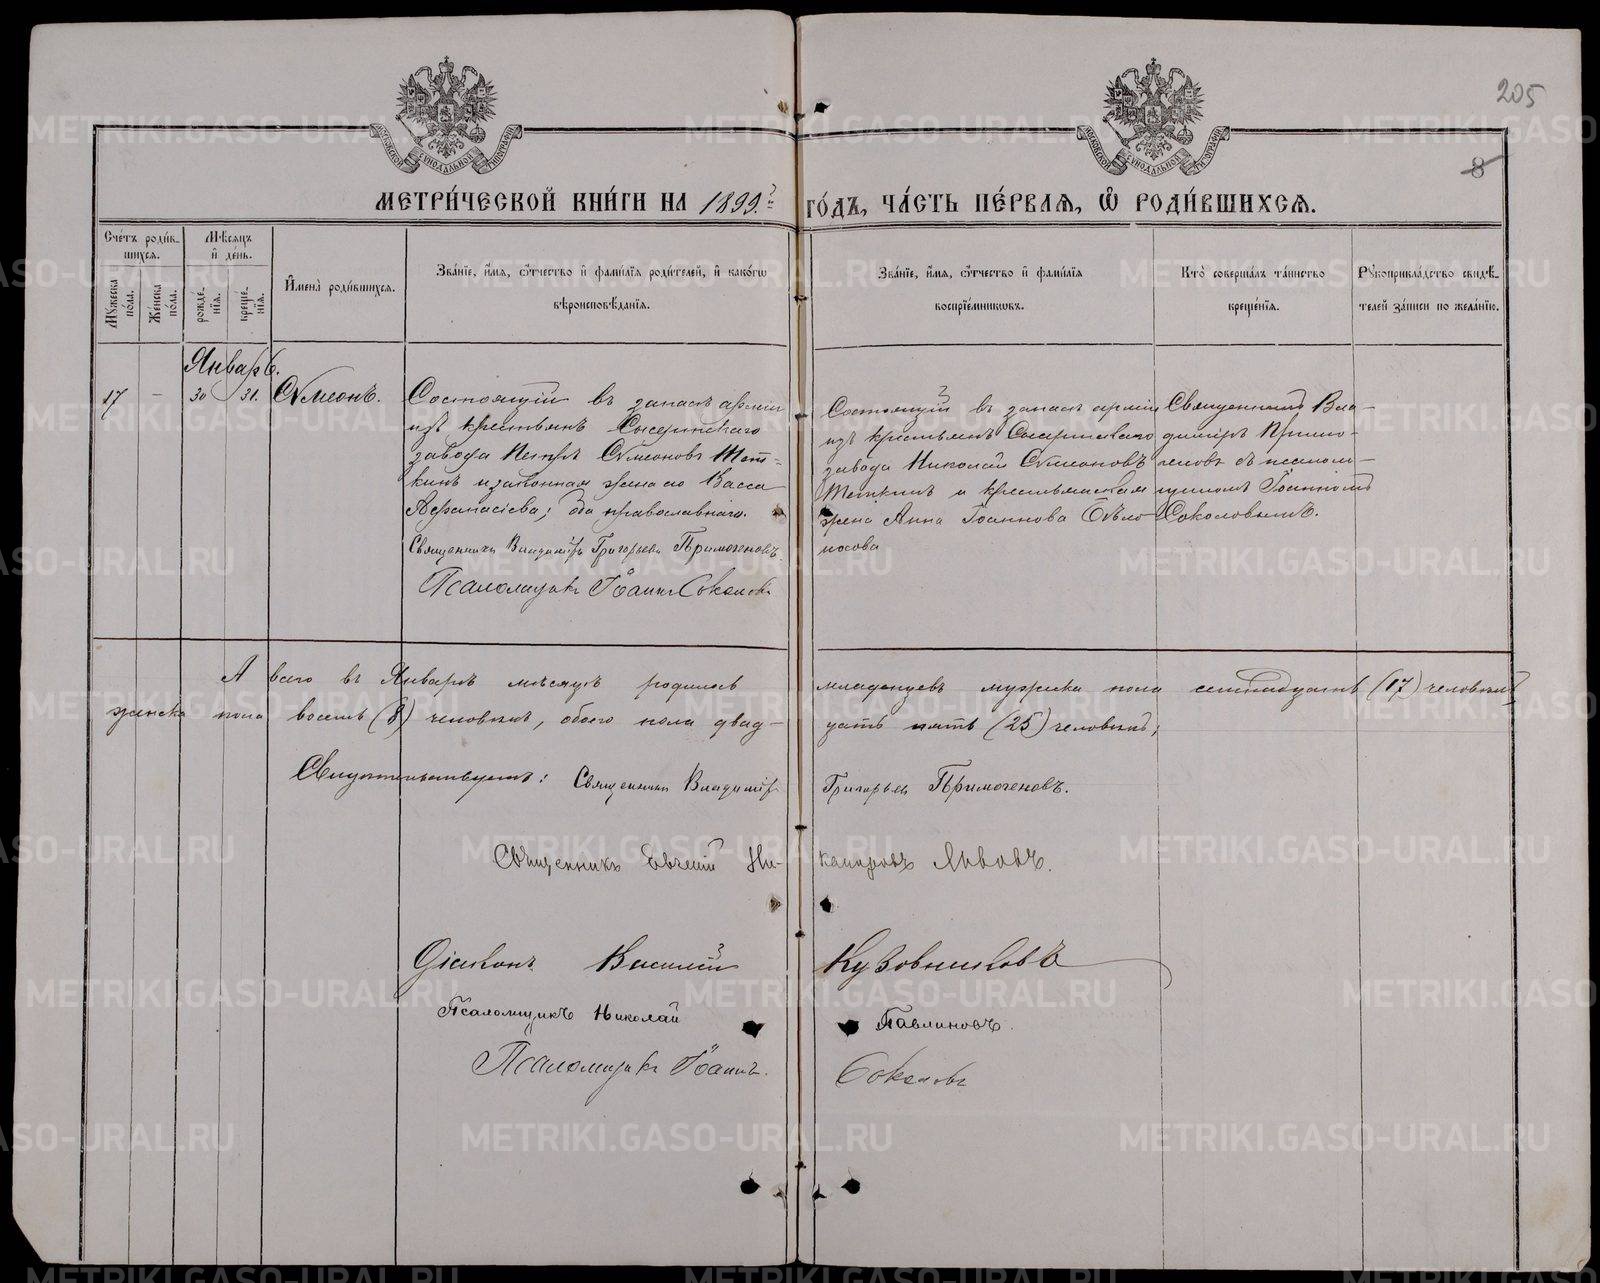 205
8
МЕТРИ́ЧЕСКОЙ КНИ́ГИ НА 1899й ГО́ДЪ, ЧА́СТЬ ПЕ́РВАЯ, Ѡ҆ РОДИ́ВШИХСЯ.
Сче́тъ роди́в-
шихся.
Му́жеска по́ла.
Же́нска по́ла.
Мѣ́сяцъ
и҆ де́нь.
рожде́нїя.
креще́нїя.
И҆мена̀ роди́вшихся.
Зва́нїе, и҆́мя, ѻ҆́тчество и҆ фами́лїя роди́телей, и҆ како́гѡ
вѣроисповѣ́данїя.
Зва́нїе, и҆́мя, ѻ҆́тчество и҆ фами́лїя
воспрїе́мниковъ.
Кто̀ соверша́лъ та́инство
креще́нїя.
Рꙋкоприкла́дство свидѣ́-
телей за́писи по жела́нїю.
Январь.
17 — 30 31. Сѵмеонъ.
Состоящій въ запасѣ арміи
изъ крестьянъ Сысертскаго
завода Петръ Сѵмеоновъ Тет-
кинъ и законная жена его Васса
Афанасіева; оба православнаго.
Священникъ Владиміръ Григорьевъ Примогеновъ
Псаломщикъ Іоаннъ Соколовъ.
Состоящій въ запасѣ арміи
изъ крестьянъ Сысертскаго
завода Николай Сѵмеоновъ
Теткинъ и крестьянская
жена Анна Іоаннова Бѣло-
носова
Священникъ Вла-
диміръ Примо-
геновъ съ псалом-
щикомъ Іоанномъ
Соколовымъ.
А всего въ Январѣ мѣсяцѣ родилось младенцевъ мужска пола семнадцать (17) человѣкъ
женска пола восемь (8) человѣкъ, обоего пола двад-
цать пять (25) человѣкъ;
Свидѣтельствуютъ: Священникъ Владиміръ Григорьевъ Примогеновъ.
Священникъ Евгеній Ни-каноровъ Львовъ.
Діаконъ Василій Кузовниковъ
Псаломщикъ Николай Павлиновъ.
Псаломщикъ Іоаннъ Соколовъ
METRIKI.GASO-URAL.RU